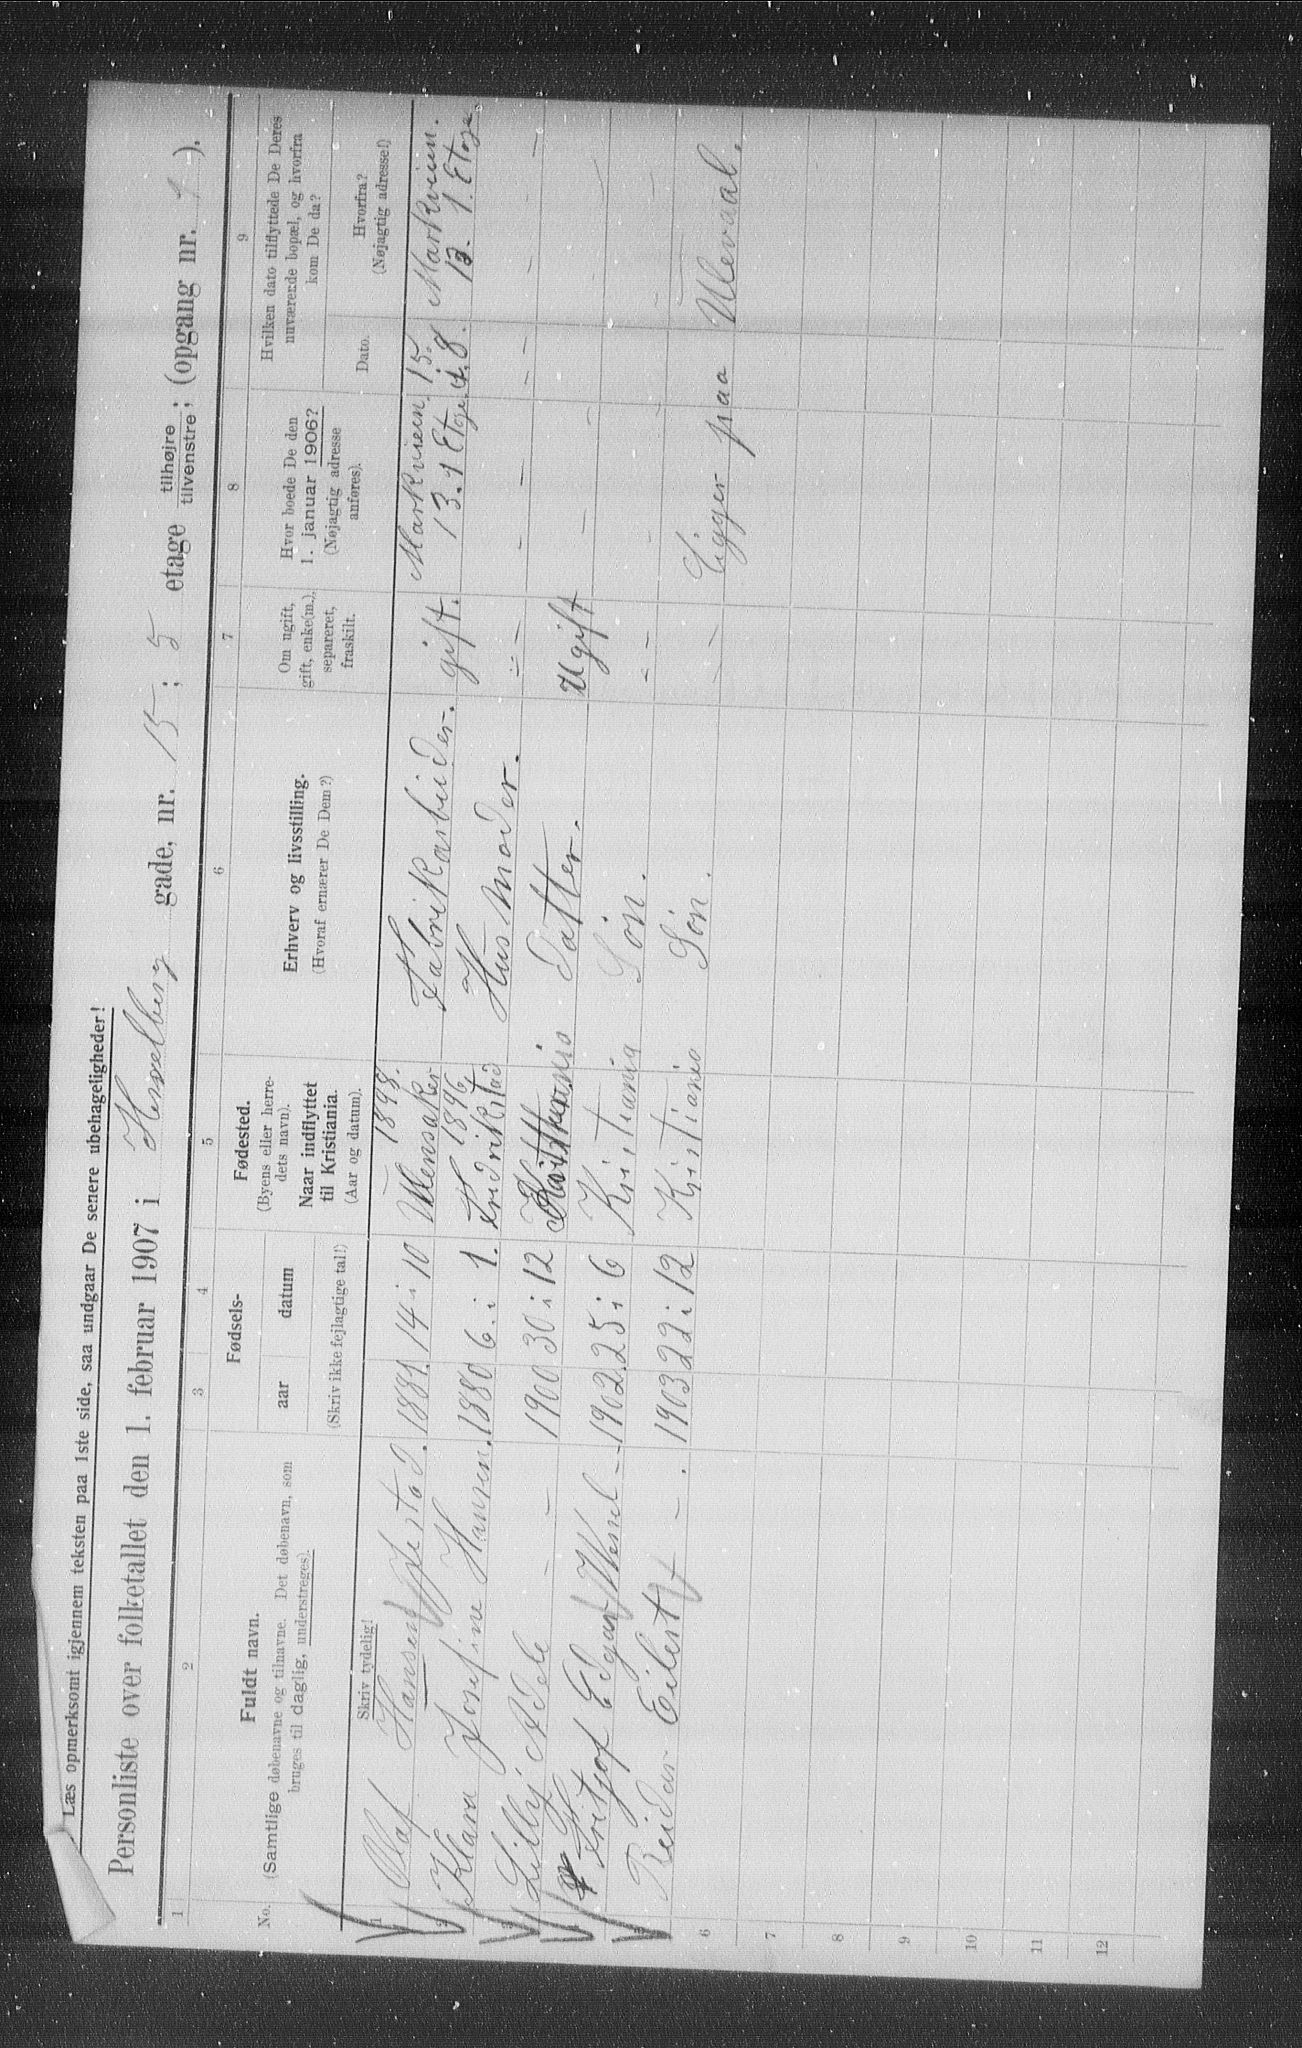 Læs opmerksomt igjennem teksten paa 1ste side, saa undgaar De senere ubehageligheder!
Personliste over folketallet den 1. februar 1907 i gade, nr. 15; 5 etage tilhøjre / tilvenstre; (opgang nr. 1).
1 2 3 4 5 6 7 8 9
No. Fuldt navn.
(Samtlige døbenavne og tilnavne. Det døbenavn, som
bruges til daglig, understreges).
Skriv tydelig!
Fødsels-
aar datum
(Skriv ikke fejlagtige tal!)
Fødested.
(Byens eller herre-
dets navn).
Naar indflyttet
til Kristiania.
(Aar og datum).
Erhverv og livsstilling.
(Hvoraf ernærer De Dem?)
Om ugift,
gift, enke(m.),
separeret,
fraskilt.
Hvor boede De den
1. januar 1906?
(Nøjagtig adresse
anføres).
Hvilken dato tilflyttede De Deres
nuværende bopæl, og hvorfra
kom De da?
Dato. Hvorfra?
(Nøjagtig adresse!)
1898. Markveien 15. Markveien.
1 Olaf Hansen 1881. 14 i 10 Ullensaker Fabrikarbeider. gift. 13. 1 Etage. i 8. 13. 1. Etage.
1896
2 Klara Josefine Hansen. 1880 6. i 1. Fredrikstad Husmoder. " — - — — — - - —
3 Lilly Adele — — 1900 30 i 12 Datter. Ugift — — —
4 Fritjof Edgar — 1902. 25 i 6 Kristiania Søn. " — - - - —
5 Reidar Eilert — . 1903 22 i 12 Kristiania Søn. — — Ligger paa Ullevaal.
6
7
8
9
10
11
12